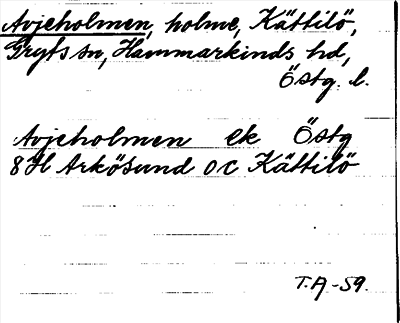 Avjeholmen, holme, Kättilö,
Gryts sn, Hammarkinds hd,
Östg. l.
Avjeholmen ek Östg
8H Arkösund OC Kättilö
T.A-59.